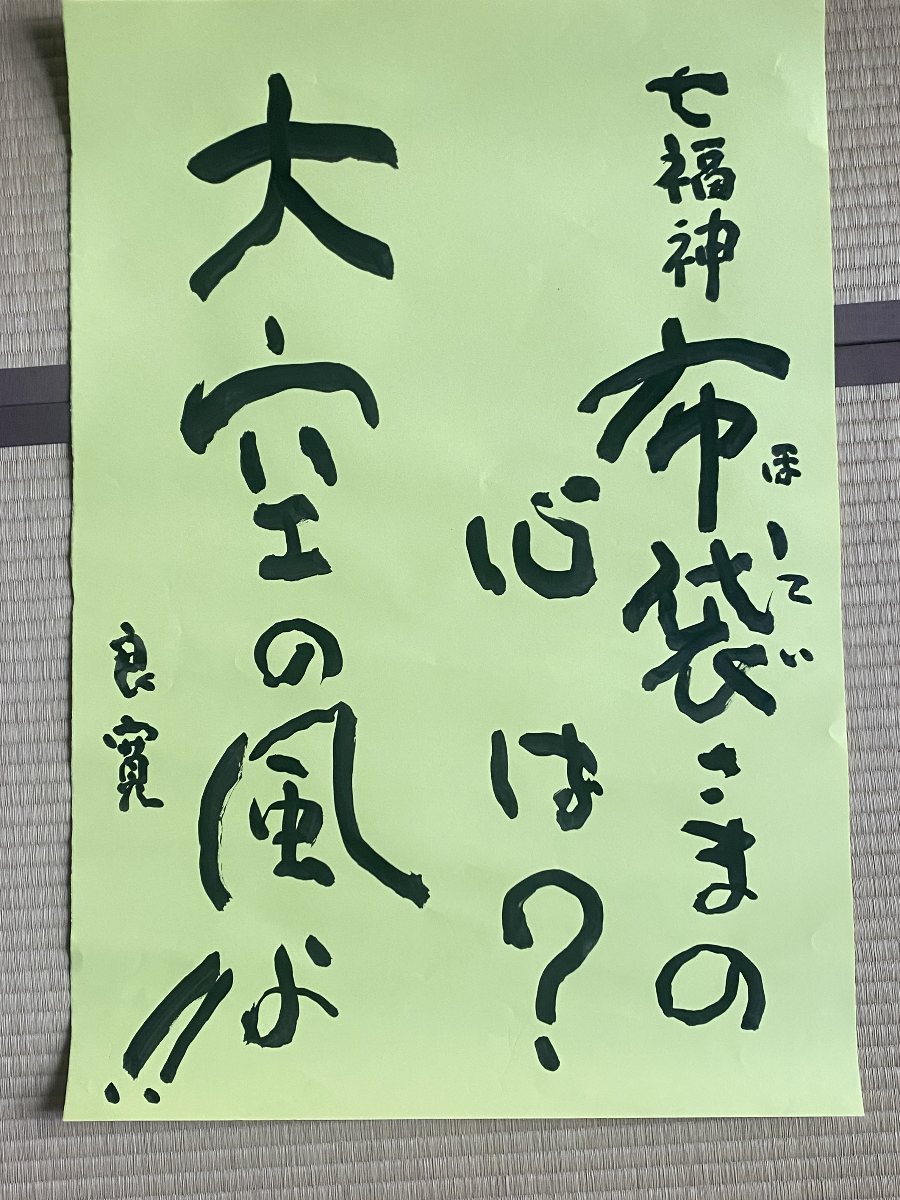 七福神布袋さまの
ほてい
心は?
大空の風よ!!
良寛